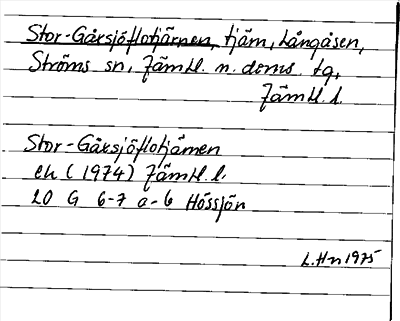 Stor-Gåxsjöflotjärnen, tjärn, Långåsen,
Ströms sn, Jämtl. n. doms. tg,
Jämtl. l.
Stor-Gåxsjöflotjärnen
ek (1974) Jämtl. l.
20 G 6-7 a-b Hössjön
L.Hn 1975